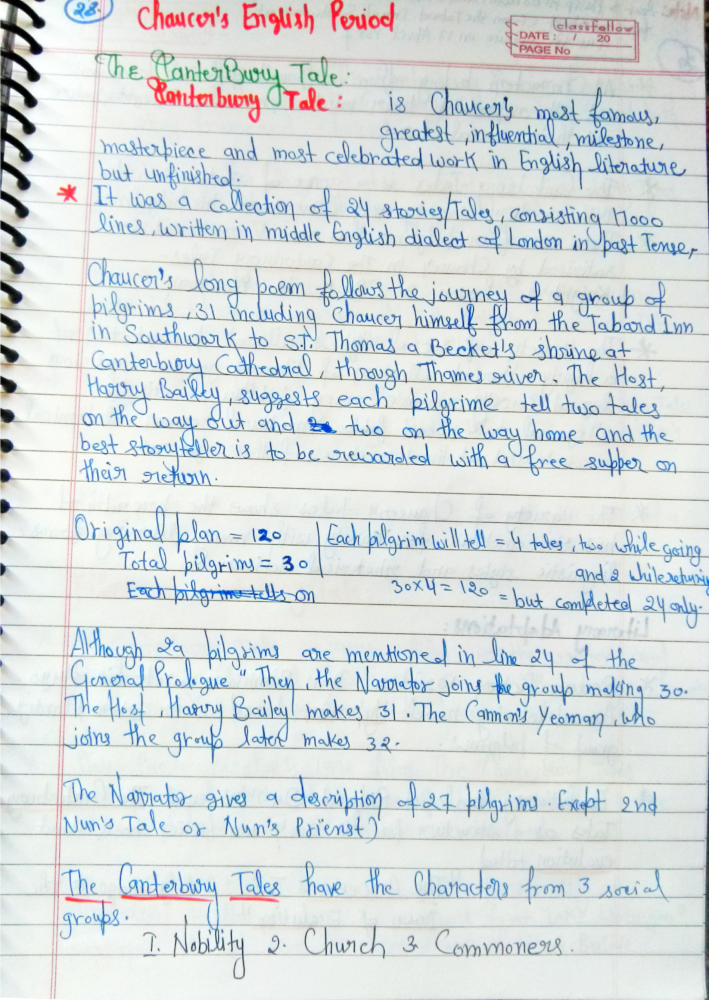 28.
Chaucer's English Period
classfellow
DATE: / 20
PAGE No
The CanterBury Tale:
Canterbury Tale: is Chaucer's most famous,
greatest, influential, milestone,
masterpiece and most celebrated work in English literature
but unfinished.
* It was a collection of 24 stories/Tales, consisting 17000
lines, written in middle English dialect of London in past Tense,
Chaucer's long poem follows the journey of a group of
pilgrims, 31 including Chaucer himself from the Tabard Inn
in Southwark to ST. Thomas a Becket's shrine at
Canterbury Cathedral, through Thames river. The Host,
Harry Bailey, suggests each pilgrime tell two tales
on the way out and two on the way home and the
best storyteller is to be rewarded with a free supper on
their return.
Original plan = 120 | Each pilgrim will tell = 4 tales, two while going
Total pilgrims = 30 and 2 while returning
Each pilgrim tells on 30x4 = 120 = but completed 24 only.
Although 29 pilgrims are mentioned in line 24 of the
General Prologue" Then, the Narrator joins the group making 30.
The Host, Harry Bailey makes 31. The Cannon's Yeoman, who
joins the group later makes 32.
The Narrator gives a description of 27 pilgrims. Except 2nd
Nun's Tale or Nun's Prienst)
The Canterbury Tales have the Characters from 3 social
groups.
I. Nobility 2. Church 3. Commoners.